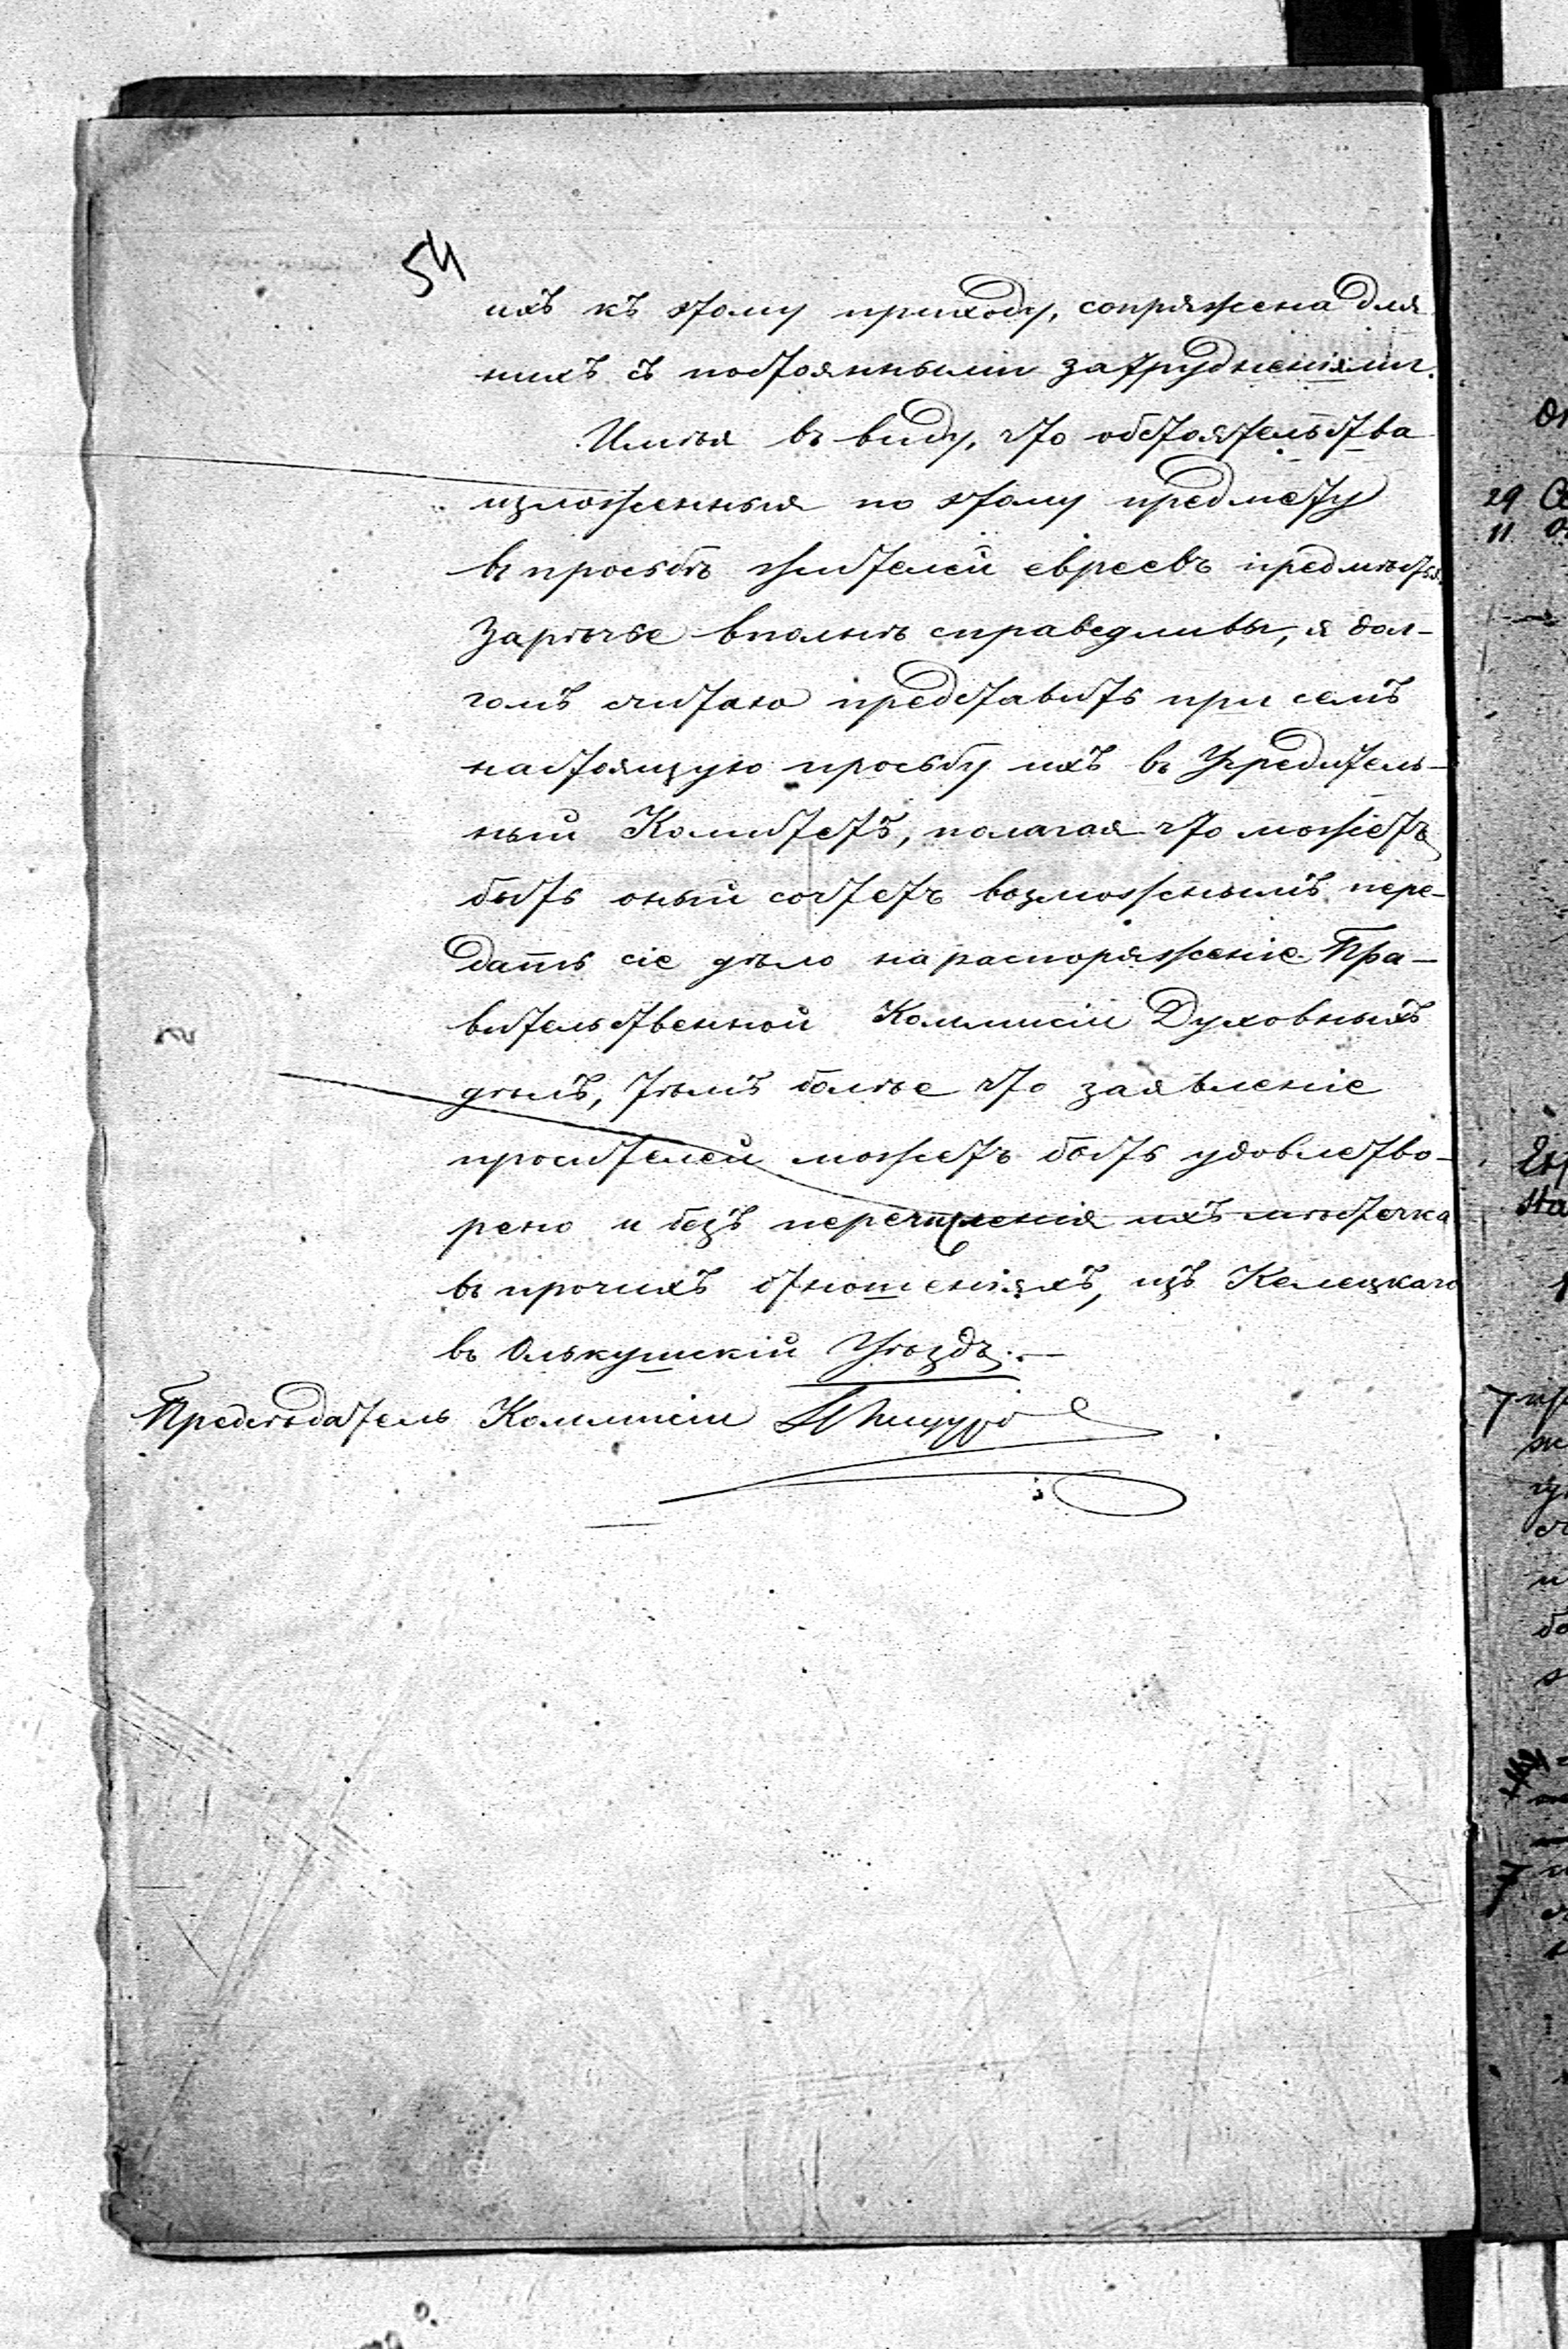 54
ихъ къ этому приходу, сопряжена для
нихъ съ постоянными затрудненіями.
Имѣя въ виду, что обстоятельства
изложенныя по этому предмету
въ просьбѣ жителей евреевъ предмѣстья
Зарѣчье вполнѣ справедливы, я дол-
гомъ считаю представить при семъ
настоящую просьбу ихъ въ Учредитель-
ный Комитетъ, полагая что можетъ
быть оный сочтетъ возможнымъ пере-
дать сіе дѣло на распоряженіе Пра-
вительственной Коммисіи Духовныхъ
дѣлъ, тѣмъ болѣе что заявленіе
просителей можетъ быть удовлетво-
рено и безъ перечисленія ихъ мѣстечка
въ прочихъ отношеніяхъ, изъ Келецкаго
въ Олькушскій Уѣздъ.—
Предсѣдатель Коммисіи
29
11